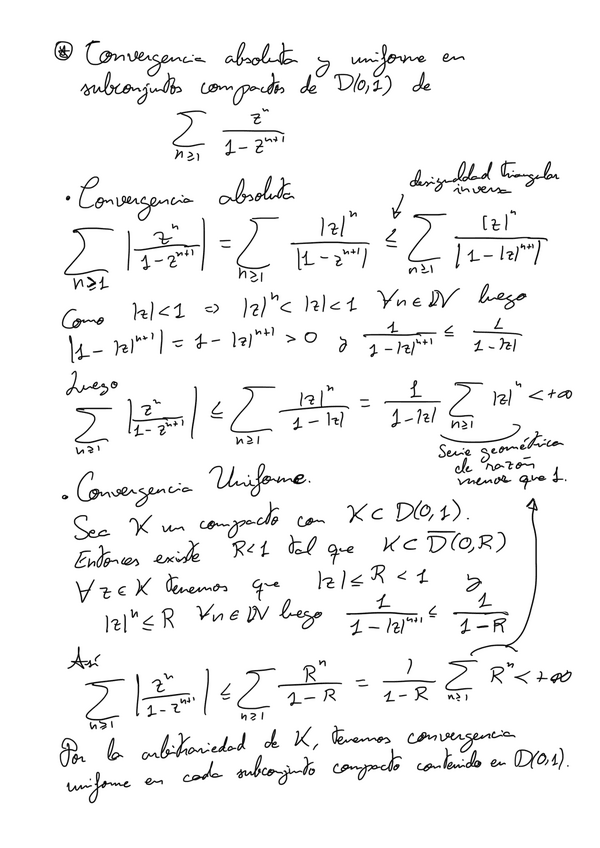 ⊛ Convergencia absoluta y uniforme en
subconjuntos compactos de D(0,1) de
∑_{n≥1} z^n / (1 - z^{n+1})
· Convergencia absoluta
desigualdad triangular
inversa
∑_{n≥1} |z^n / (1 - z^{n+1})| = ∑_{n≥1} |z|^n / |1 - z^{n+1}| ≤ ∑_{n≥1} |z|^n / |1 - |z|^{n+1}|
Como |z|<1 ⇒ |z|^n < |z| < 1 ∀n∈ℕ luego
|1 - |z|^{n+1}| = 1 - |z|^{n+1} > 0 y 1 / (1 - |z|^{n+1}) ≤ 1 / (1 - |z|)
Luego
∑_{n≥1} |z^n / (1 - z^{n+1})| ≤ ∑_{n≥1} |z|^n / (1 - |z|) = 1 / (1 - |z|) ∑_{n≥1} |z|^n < +∞
Serie geométrica
de razón
menor que 1.
· Convergencia Uniforme.
Sea K un compacto con K ⊂ D(0,1).
Entonces existe R<1 tal que K ⊂ D̅(0,R)
∀ z ∈ K tenemos que |z| ≤ R < 1 y
|z|^n ≤ R ∀n∈ℕ luego 1 / (1 - |z|^{n+1}) ≤ 1 / (1 - R)
Así
∑_{n≥1} |z^n / (1 - z^{n+1})| ≤ ∑_{n≥1} R^n / (1 - R) = 1 / (1 - R) ∑_{n≥1} R^n < +∞
Por la arbitrariedad de K, tenemos convergencia
uniforme en cada subconjunto compacto contenido en D(0,1).